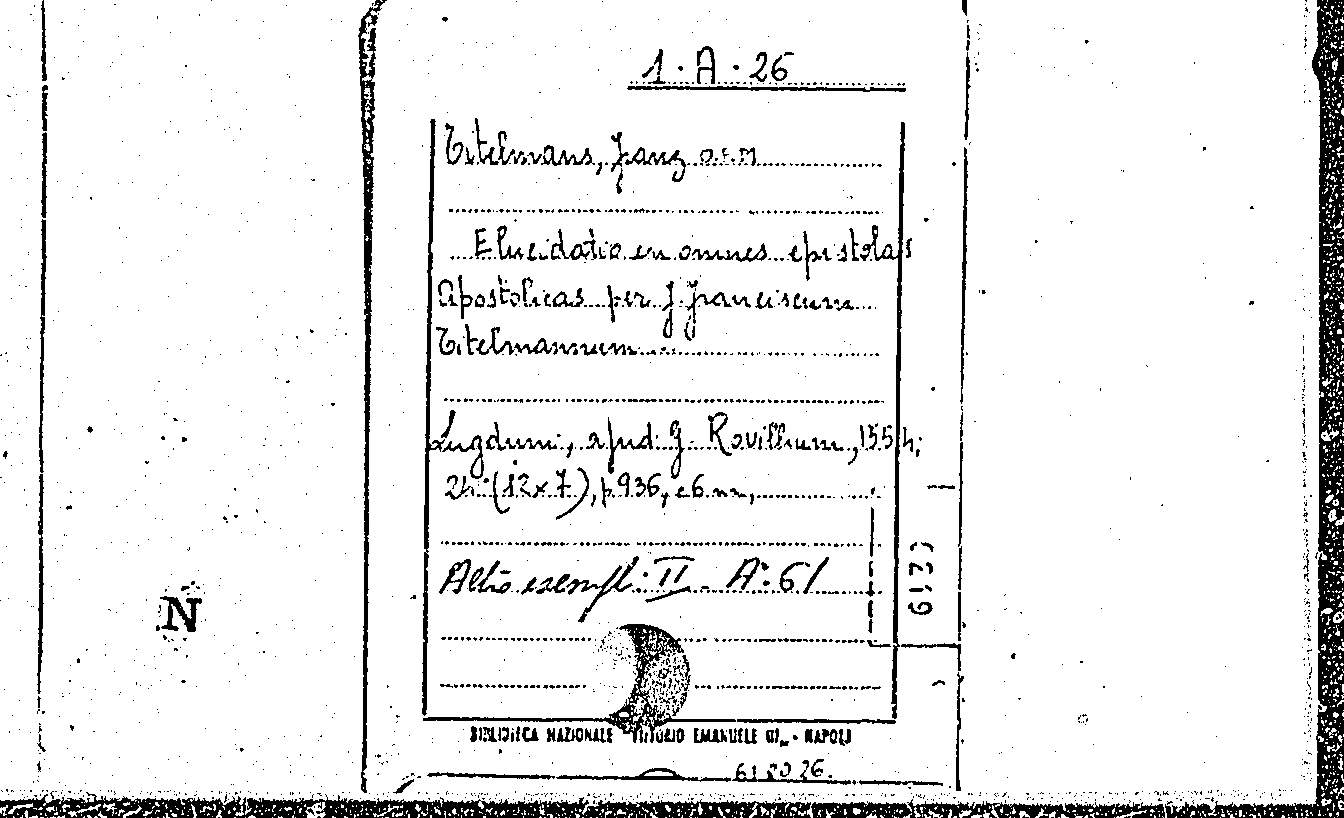 1·A·26
Titelmans, Franz O.F.M
Elucidatio in omnes epistolas
Apostolicas per F. Franciscum
Titelmannum
Lugduni, apud G. Rovillium, 1554;
24° (12x7), p. 936, c 6 nn,
Altro esempl: II A. 61
N
BIBLIOTECA NAZIONALE VITTORIO EMANUELE III - NAPOLI
612026.